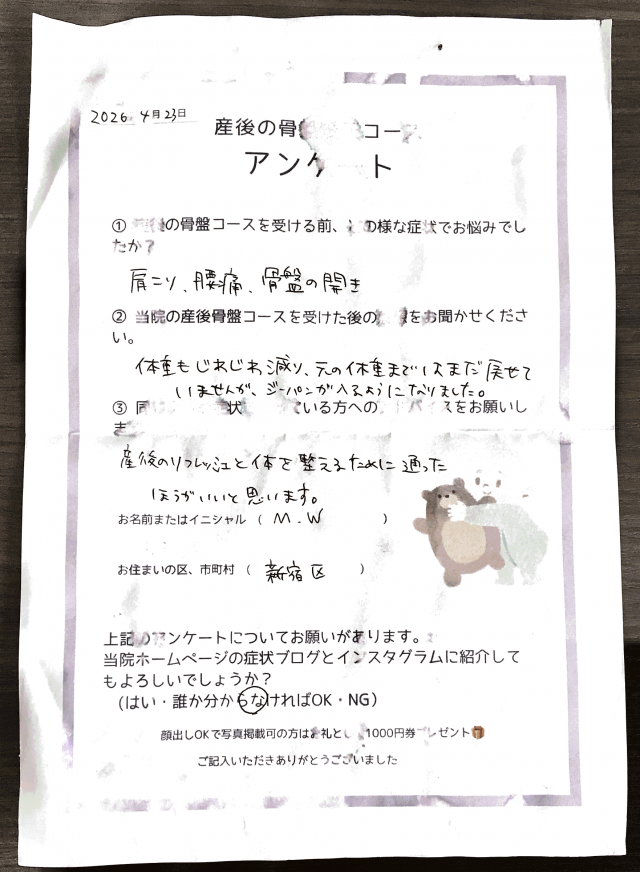 2026 4月23日
産後の骨盤 コース
アンケート
① の骨盤コースを受ける前、 の様な症状でお悩みでし
たか?
肩こり、腰痛、骨盤の開き
② 当院の産後骨盤コースを受けた後の をお聞かせくださ
い。
体重もじわじわ減り、元の体重まではまだ戻せて
いませんが、ジーパンが入るようになりました。
③ 同 症状 ている方への アドバイスをお願いし
ま
産後のリフレッシュと体を整えるために通った
ほうがいいと思います。
お名前またはイニシャル ( M.W )
お住まいの区、市町村 ( 新宿区 )
上記のアンケートについてお願いがあります。
当院ホームページの症状ブログとインスタグラムに紹介して
もよろしいでしょうか?
(はい・誰か分からなければOK・NG)
顔出しOKで写真掲載可の方はお礼とし 1000円券プレゼント
ご記入いただきありがとうございました